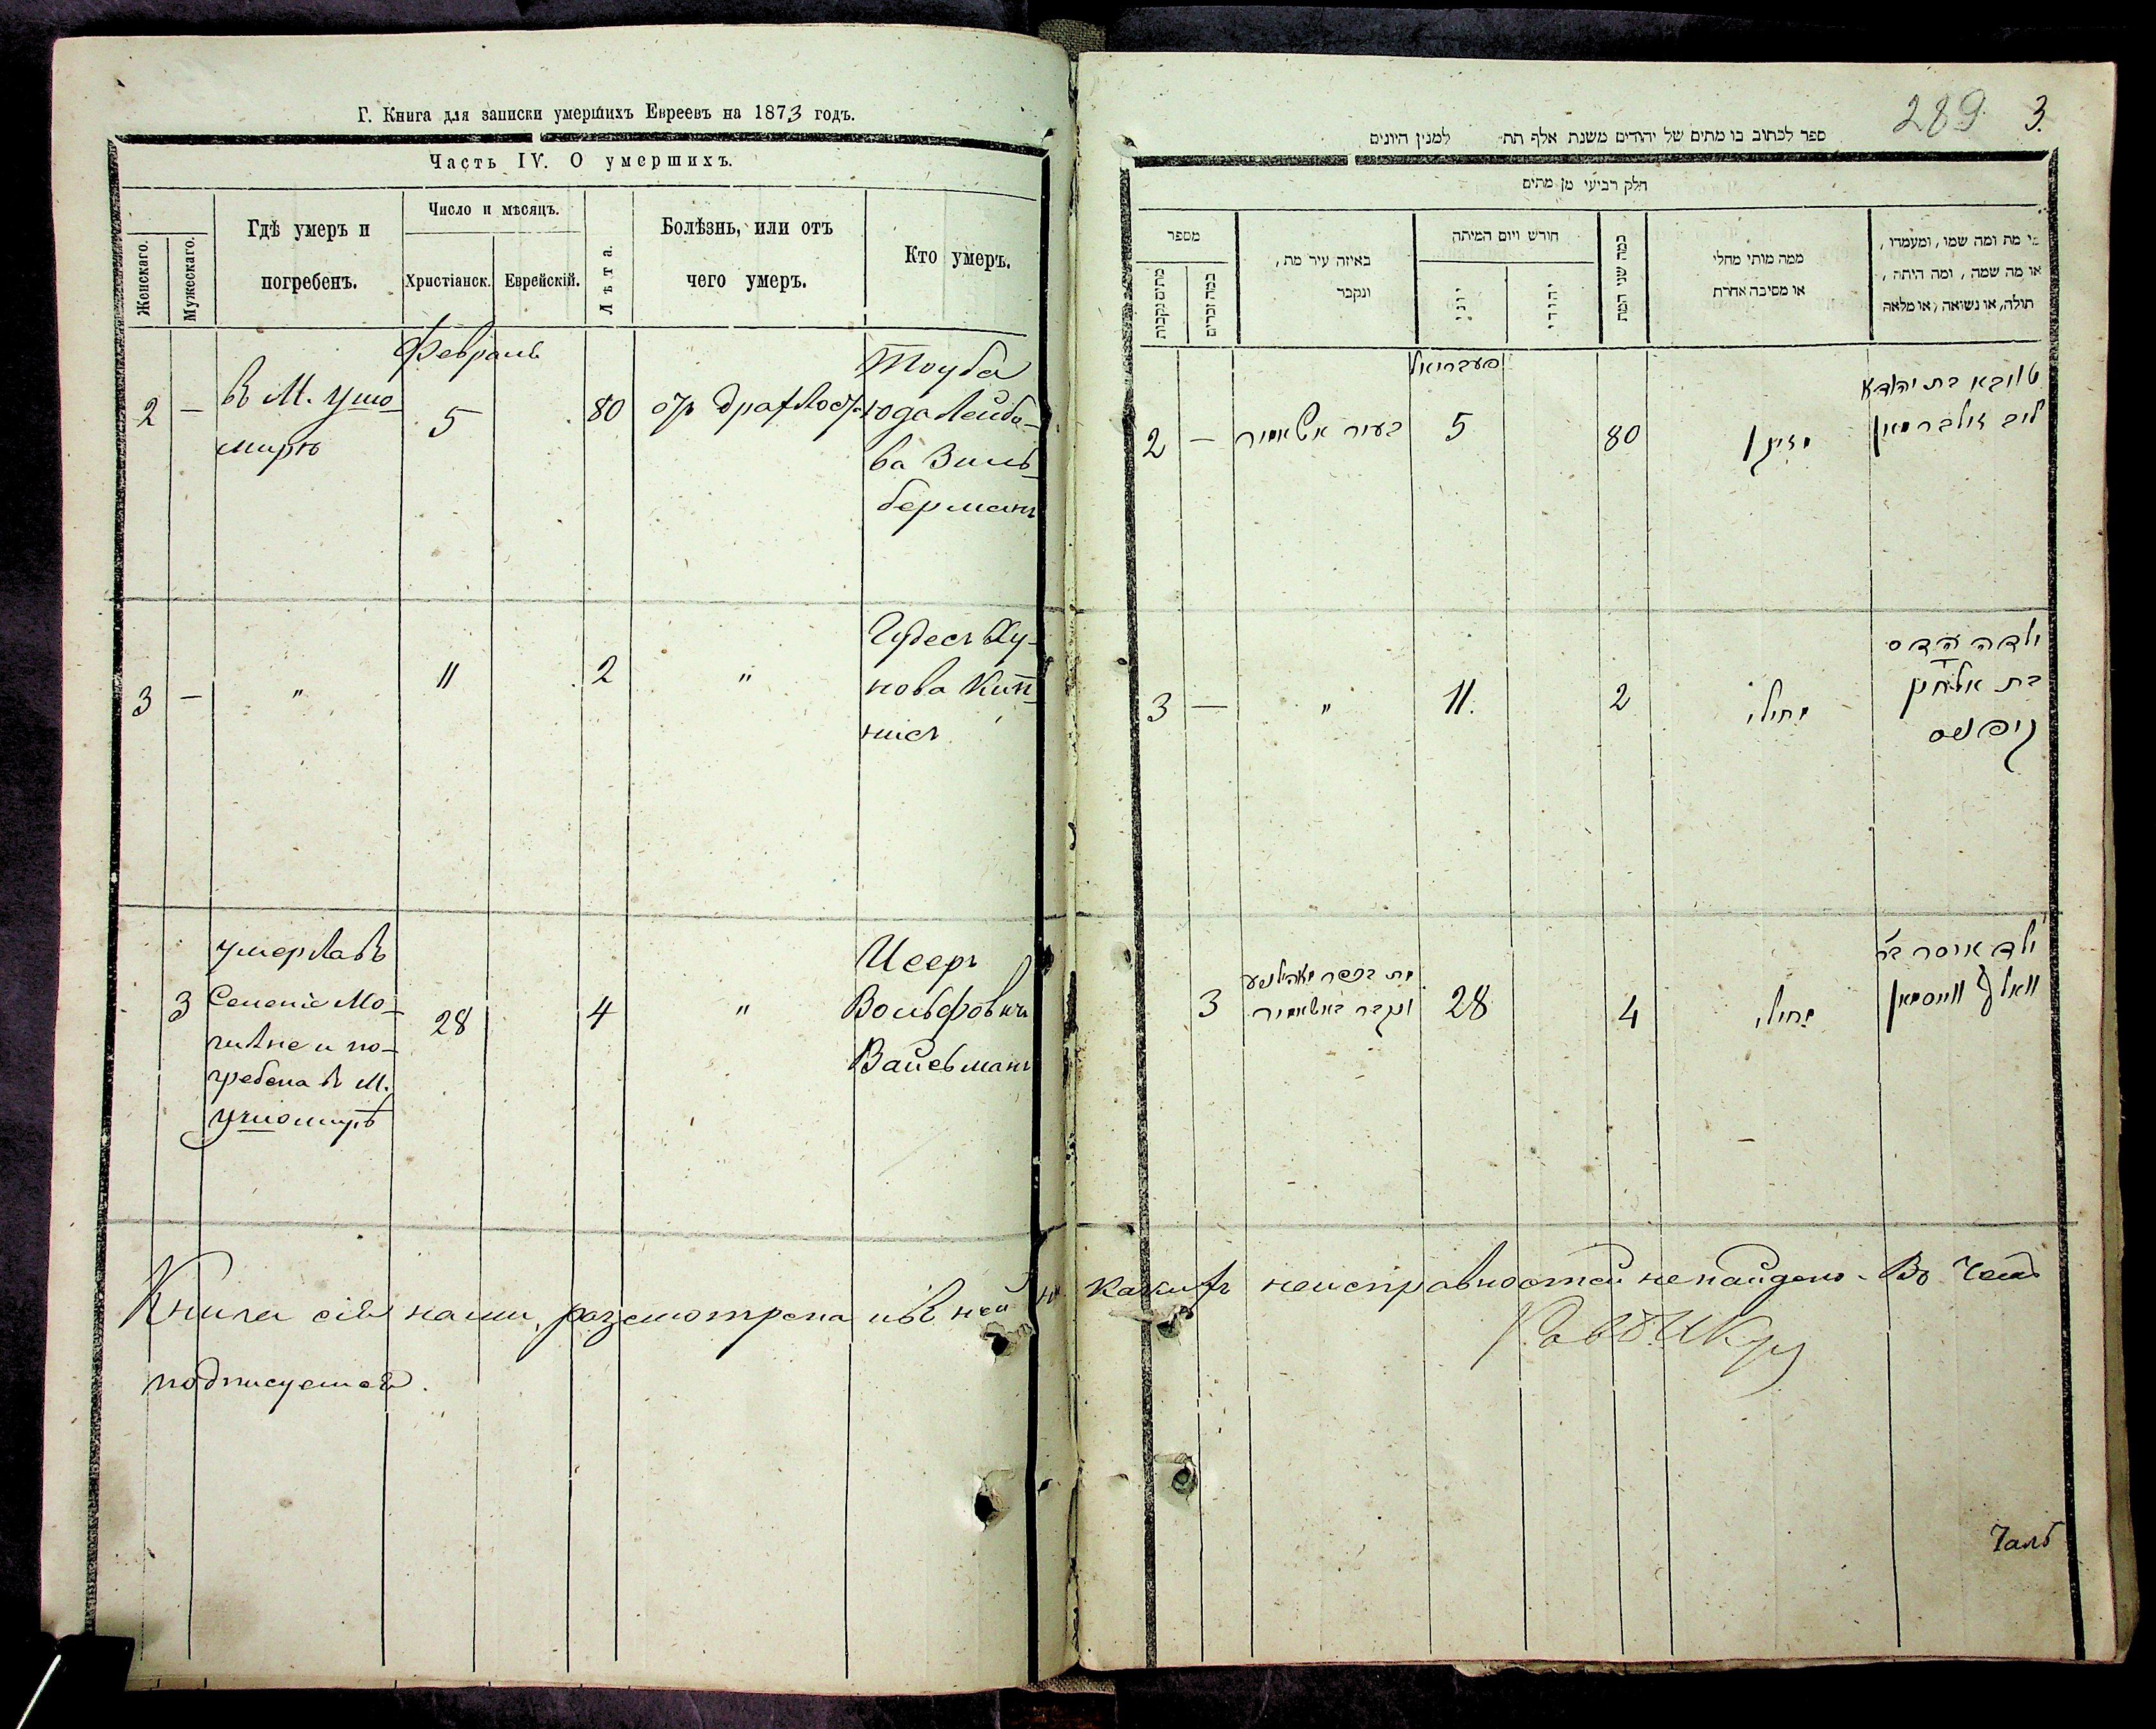 Г. Книга для записки умершихъ Евреевъ на 1873 годъ.
Часть IV. О умершихъ.
Женскаго.
Мужескаго.
Гдѣ умеръ и
погребенъ.
Число и мѣсяцъ.
Христіанск.
Еврейскій.
Лѣта.
Болѣзнь, или отъ
чего умеръ.
Кто умеръ.
Февраль
2
—
въ М. Ушо-
мирѣ
5
80
отъ драхлости
Тоуба
Юда Лейбо-
ва Зиль-
берманъ
3
—
"
11
2
"
Гудесъ Ху-
нова Кип-
нисъ
3
умерла въ
Селеніе Мо-
гилне и по-
гребена въ М.
Ушомирѣ
28
4
"
Исеръ
Вольфовичъ
Вайсъманъ
Книга сія нами разсмотрена и въ ней ни какихъ неисправностей не найдено. Въ чемъ
подписуемся.
289
3.
ספר לכתוב בו מתים של יהודים משנת אלף תת למנין היונים
חלק רביעי מן מתים
מספר
מתים נקבות
כמה זכרים
באיזה עיר מת,
ונקבר
חורש ויום המיתה
יוני
יהודי
כמה שני המת
ממה מותי מחלי
או מסיבה אחרת
מי מת ומה שמו, ומעמדו,
או מה שמה, ומה היתה,
תולה, או נשואה, או מלאה
פעברואל
2
—
בעיר אושאמיר
5
80
מזיקן
טויבא בת יהודא
ליב זילברמאן
3
—
"
11.
2
מחולי
ילדה הדס
בת אלחנן
קיפניס
3
ונקבר באושאמיר
28
4
מחולי
ילד איסר בר
וואלף ווייסמאן